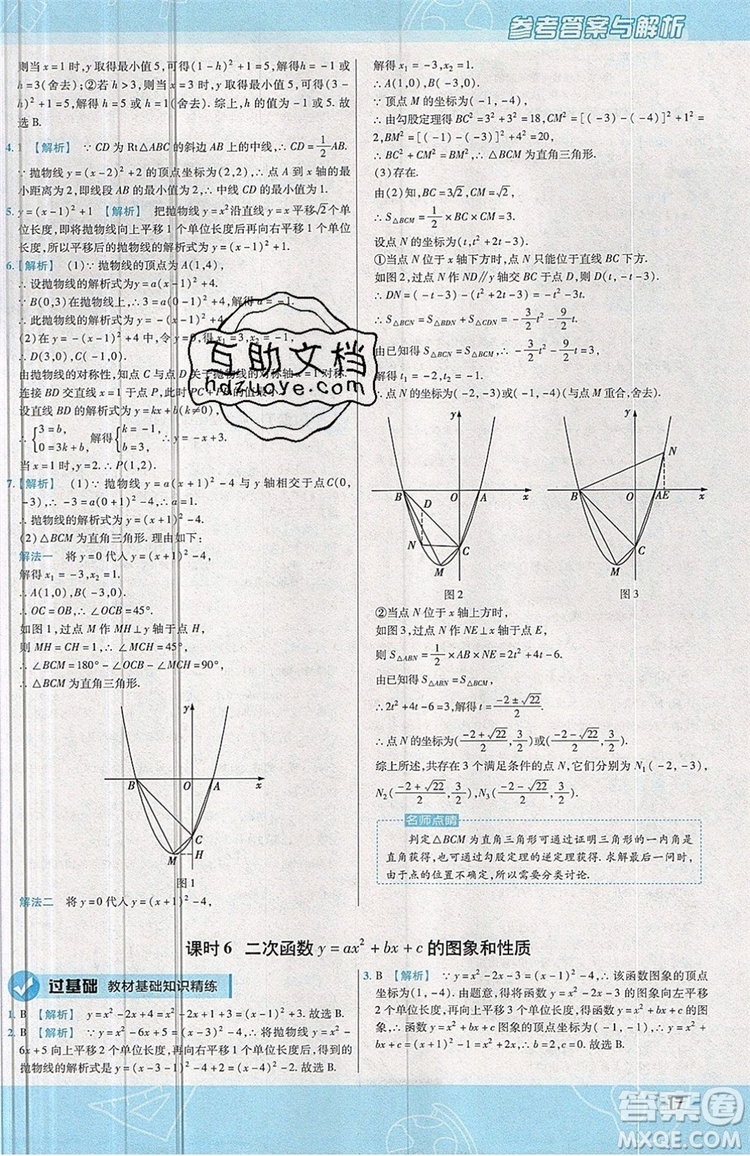 参考答案与解析
则当 x=1 时,y 取得最小值 5,可得(1-h)²+1=5,解得 h=-1 或
h=3(舍去);②若 h>3,当 x=3 时,y 取得最小值 5,可得(3-
h)²+1=5,解得 h=5 或 h=1(舍去). 综上,h=-1 或 h=5. 故
选 B.
4. 1 【解析】 ∵CD 为 Rt△ABC 的斜边 AB 上的中线,∴CD=1/2
AB. ∵抛物线 y=(x-2)²+2 的顶点坐标为(2,2),∴点 A 到 x 轴的最
小距离为 2,即线段 AB 的最小值为 2,∴CD 的最小值为 1.
5. y=(x-1)²+1 【解析】 把抛物线 y=x² 沿直线 y=x 平移√2个单
位长度,即为抛物线向上平移 1 个单位长度后再向右平移 1 个单位
长度,所以平移后的抛物线的解析式为 y=(x-1)²+1.
6.【解析】 (1)∵抛物线的顶点为 A(1,4),
∴设抛物线的解析式为 y=a(x-1)²+4.
∵B(0,3)在抛物线上,∴a+4=3,解得 a=-1,
∴此抛物线的解析式为 y=-(x-1)²+4.
(2)在 y=-(x-1)²+4 中,令 y=0,得 x₁=3,x₂=-1,
∴D(3,0),C(-1,0).
由抛物线的对称性,知点 C 与点 D 关于抛物线的对称轴 x=1 对称.
连接 BD 交直线 x=1 于点 P,此时 PC+PB 的值最小.
设直线 BD 的解析式为 y=kx+b(k≠0),
∴{3=b, 0=3k+b, 解得{k=-1, b=3, ∴y=-x+3.
当 x=1 时,y=2. ∴P(1,2).
7.【解析】 (1)∵抛物线 y=a(x+1)²-4 与 y 轴相交于点 C(0,
-3),∴-3=a(0+1)²-4,∴a=1,
∴抛物线的解析式为 y=(x+1)²-4.
(2)△BCM 为直角三角形. 理由如下:
解法一 将 y=0 代入 y=(x+1)²-4,
解得 x₁=-3,x₂=1.
∴A(1,0),B(-3,0),
∴OC=OB,∴∠OCB=45°.
如图 1,过点 M 作 MH⊥y 轴于点 H,
则 MH=CH=1,∴∠MCH=45°,
∴∠BCM=180°-∠OCB-∠MCH=90°,
∴△BCM 为直角三角形.
y
B
O
A
x
C
M
H
图 1
解法二 将 y=0 代入 y=(x+1)²-4,
解得 x₁=-3,x₂=1.
∴A(1,0),B(-3,0).
∵顶点 M 的坐标为(-1,-4),
∴由勾股定理得 BC²=3²+3²=18,BM²=[(-3)-(-1)]²+
[0-(-4)]²=20,CM²=[(-4)-(-3)]²+(-1)²=2,
∴BC²+CM²=BM²,∴△BCM 为直角三角形.
(3)存在.
由(2)知,BC=3√2,CM=√2,
∴S△BCM=1/2×BC×CM=1/2×3√2×√2=3.
设点 N 的坐标为(t,t²+2t-3).
①当点 N 位于 x 轴下方时,点 N 只能位于直线 BC 下方.
如图 2,过点 N 作 ND∥y 轴交 BC 于点 D,则 D(t,-t-3),
∴DN=(-t-3)-(t²+2t-3)=-t²-3t,
∴S△BCN=S△BDN+S△CDN=-3/2t²-9/2t.
由已知得 S△BCN=S△BCM,∴-3/2t²-9/2t=3,
解得 t₁=-2,t₂=-1.
∴点 N 的坐标为(-2,-3)或(-1,-4)(与点 M 重合,舍去).
y
B
D
O
A
x
N
C
M
图 2
y
N
B
O
A
E
x
C
M
图 3
②当点 N 位于 x 轴上方时,
如图 3,过点 N 作 NE⊥x 轴于点 E,
则 S△ABN=1/2×AB×NE=2t²+4t-6.
由已知得 S△ABN=S△BCM,
∴2t²+4t-6=3,解得 t=(-2±√22)/2.
∴点 N 的坐标为((-2+√22)/2,3/2)或((-2-√22)/2,3/2).
综上所述,共存在 3 个满足条件的点 N,它们分别为 N₁(-2,-3),
N₂((-2+√22)/2,3/2),N₃((-2-√22)/2,3/2).
名师点睛
判定△BCM 为直角三角形可通过证明三角形的一内角是
直角获得,也可通过勾股定理的逆定理获得. 求解最后一问时,
由于点的位置不确定,所以需要分类讨论.
课时 6 二次函数 y=ax²+bx+c 的图象和性质
过基础 教材基础知识精练
1. B 【解析】 y=x²-2x+4=x²-2x+1+3=(x-1)²+3. 故选 B.
2. B 【解析】 ∵y=x²-6x+5=(x-3)²-4,∴抛物线 y=x²-
6x+5 向上平移 2 个单位长度,再向右平移 1 个单位长度后,得到的
抛物线的解析式是 y=(x-4)²-2. 故选 B.
3. B 【解析】 ∵y=x²-2x-3=(x-1)²-4,∴该函数图象的顶点
坐标为(1,-4). 由题意,得函数 y=x²+bx+c 的图象向左平移
2 个单位长度,再向上平移 3 个单位长度得到函数 y=x²-2x-3 的
图象,∴函数 y=x²+bx+c 图象的顶点坐标为(1+2,-4-3),即
互助文档
hdzuoye.com
17
答案圈
MXQE.COM